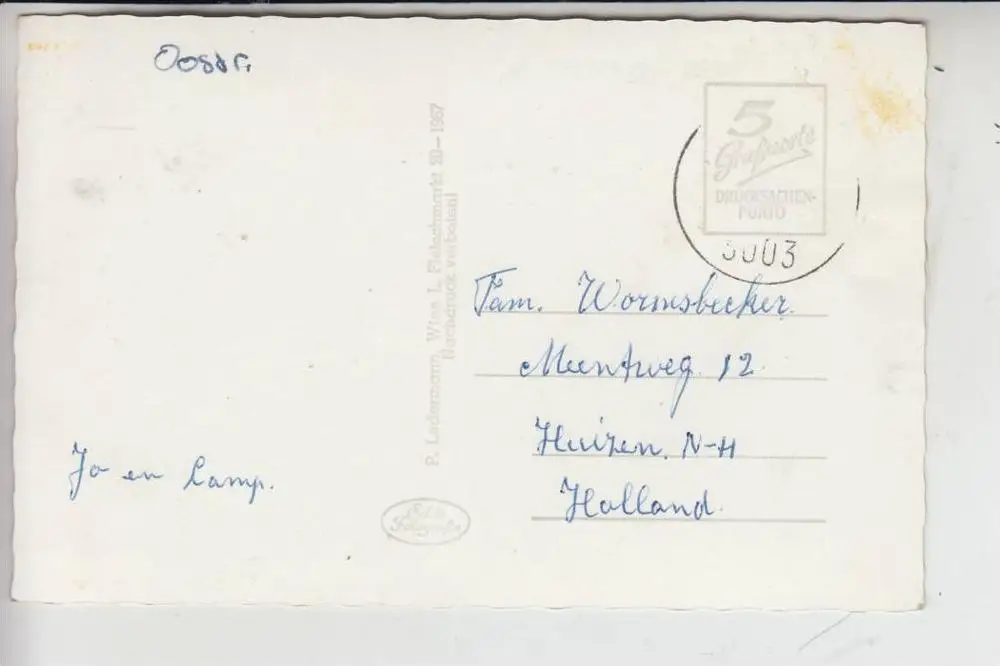 Oostr.
5
Grußworte
DRUCKSACHEN-
PORTO
3003
P. Ledermann, Wien I., Fleischmarkt 20 – 1957
Nachdruck verboten!
Fam. Wormsbecker.
Meentweg 12.
Huizen. N-H
Holland.
Jo en Camp.
Echte
Fotografie